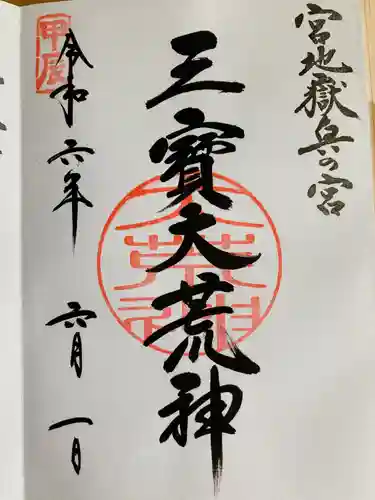 宮地嶽奥の宮
三寶大荒神
甲辰
令和六年 六月 一日